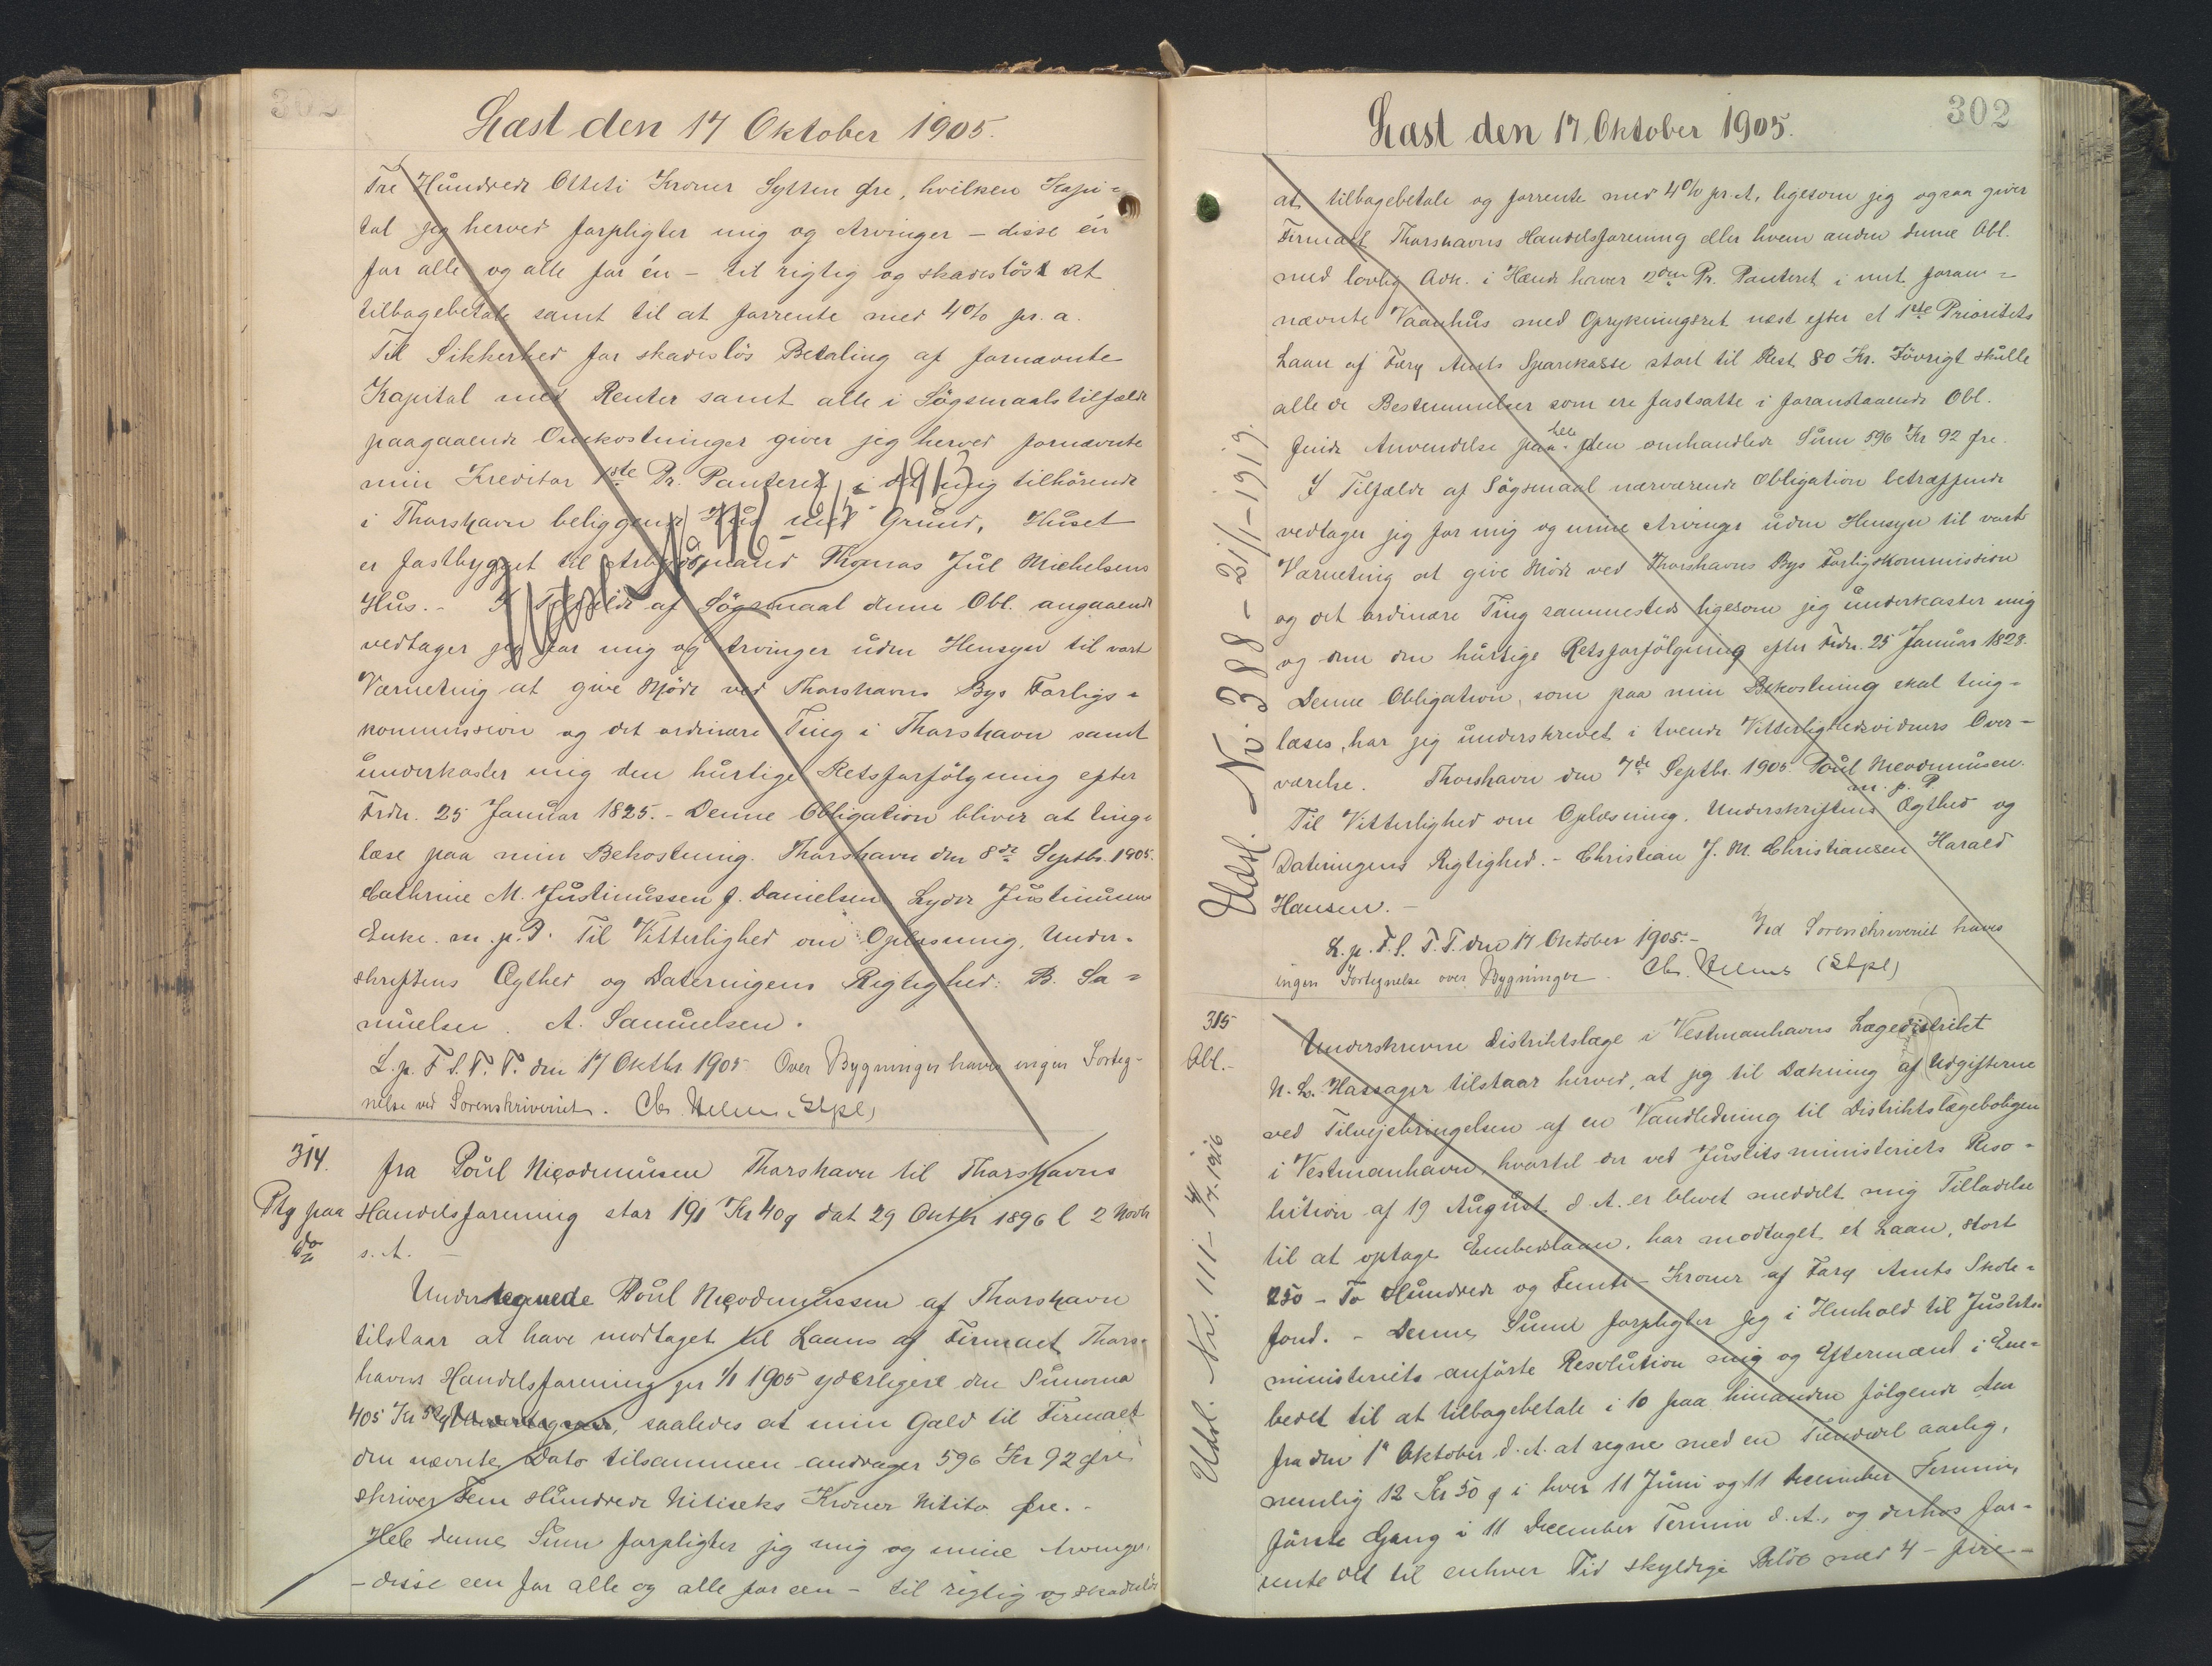 302
Læst den 17 Oktober 1905.
Tre Hundrede Otteti Kroner Sytten Øre, hvilken Kapi=
tal jeg herved forpligter mig og Arvinger – disse én
for alle og alle for én – til rigtig og skadesløst at
tilbagebetale samt til at forrente med 4% pr. a.
Til Sikkerhed for skadesløs Betaling af fornævnte
Kapital med Renter samt alle i Søgsmaalstilfælde
paagaaende Omkostninger giver jeg herved fornævnte
min Kreditor 1ste Pr. Panteret i det mig tilhørende
i Thorshavn beliggende Hus med Grund, Huset
er fastbygget til Arbejdsmand Thomas Jul Michelsens
Hus. – I Tilfælde af Søgsmaal denne Obl. angaaende
vedtager jeg for mig og Arvinger uden Hensyn til vort
Værneting at give Møde ved Thorshavns Bys Forligs=
kommission og det ordinære Ting i Thorshavn samt
underkaster mig den hurtige Retsforfølgning efter
Frdn. 25 Januar 1825. – Denne Obligation bliver at ting=
læse paa min Bekostning. Thorshavn den 8de Septbr. 1905.
Cathrine M. Justinussen f. Danielsen Lyder Justinussens
Enke. m. p. P. Til Vitterlighed om Oplæsning, Under=
skriftens Ægthed og Dateringens Rigtighed: B. Sa=
muelsen. A. Samuelsen.
L. p. F. S. T. T. den 17 Oktbr 1905 Over Bygninger haves ingen Forteg-
nelse ved Sorenskriveriet. Chr. Helms (Stpl)
314.
Ptg paa
fra Poul Nicodemussen Thorshavn til Thorshavns
Handelsforening stor 191 Kr 40 ø dat 29 Oktbr 1896 l 2 Novbr
s. A. –
Undertegnede Poul Nicodemussen af Thorshavn
tilstaar at have modtaget til Laans af Firmaet Thors=
havns Handelsforening pr 1/1 1905 yderligere den Summa
405 Kr 52 ø saaledes at min Gæld til Firmaet
den nævnte Dato tilsammen andrager 596 Kr 92 Øre
skriver Fem Hundrede Nitiseks Kroner Nitito Øre. –
Hele denne Sum forpligter jeg mig og mine Arvinger
– disse een for alle og alle for een – til rigtig og skadesløst
302
Læst den 17 Oktober 1905.
at tilbagebetale og forrente med 4% pr. A. ligesom jeg ogsaa giver
Firmaet Thorshavns Handelsforening eller hvem anden denne Obl.
med lovlig Adk. i Hænde haver 2den Pr. Panteret i mit foran=
nævnte Vaanhus med Oprykningsret næst efter et 1ste Prioritets
Laan af Færø Amts Sparekasse stort til Rest 80 Kr. Iøvrigt skulle
alle de Bestemmelser som ere fastsatte i foranstaaende Obl.
finde Anvendelse paa den omhandlede Sum 596 Kr 92 Øre.
I Tilfælde af Søgsmaal nærværende Obligation betræffende
vedtager jeg for mig og mine Arvinger uden Hensyn til vort
Værneting at give Møde ved Thorshavns Bys Forligskommission
og det ordinære Ting sammesteds ligesom jeg underkaster mig
og dem den hurtige Retsforfølgning efter Frdn. 25 Januar 1828.
Denne Obligation, som paa min Bekostning skal ting=
læses, har jeg underskrevet i tvende Vitterlighedsvidners Over=
værelse. Thorshavn den 7de Septbr. 1905. Poul Nicodemussen.
m. p. P.
Til Vitterlighed om Oplæsning, Underskriftens Ægthed og
Dateringens Rigtighed. – Christian J. M. Christiansen Harald
Hansen. –
L. p. F. S. T. T. den 17 Oktober 1905. – Ved Sorenskriveriet haves
ingen Fortegnelse over Bygninger. Chr. Helms (Stpl)
Udsl. No. 388 – 21/1 – 1919.
315
Obl. –
Underskrevne Distriktslæge i Vestmanhavns Lægedistrikt
N. L. Hassager tilstaar herved, at jeg til Dækning af Udgifterne
ved Tilvejebringelsen af en Vandledning til Distriktslægeboligen
i Vestmanhavn, hvortil der ved Justitsministeriets Reso=
lution af 19 August d. A. er blevet meddelt mig Tilladelse
til at optage Embedslaan, har modtaget et Laan, stort
250 – To Hundrede og Femti – Kroner af Færø Amts Skole=
fond. – Denne Sum forpligter jeg i Henhold til Justits=
ministeriets anførte Resolution mig og Eftermænd i Em=
bedet til at tilbagebetale i 10 paa hinanden følgende Aar
fra den 1ste Oktober d. A. at regne med en Tiendedel aarlig,
nemlig 12 Kr 50 ø i hver 11 Juni og 11 December Termin,
første Gang i 11 December Termin d. A., og derhos for=
rente det til enhver Tid skyldige Beløb med 4 – fire –
Udsl. Nr. 111 – 4/7. 1916